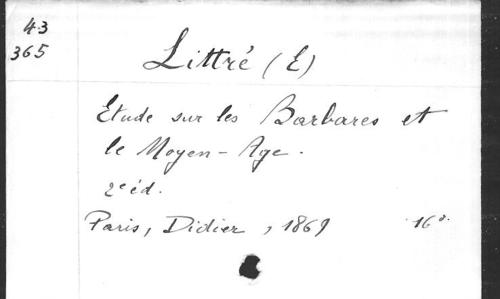 43
365
Littré (E)
Etude sur les Barbares et
le Moyen-Age.
2e éd.
Paris, Didier, 1869 16º.